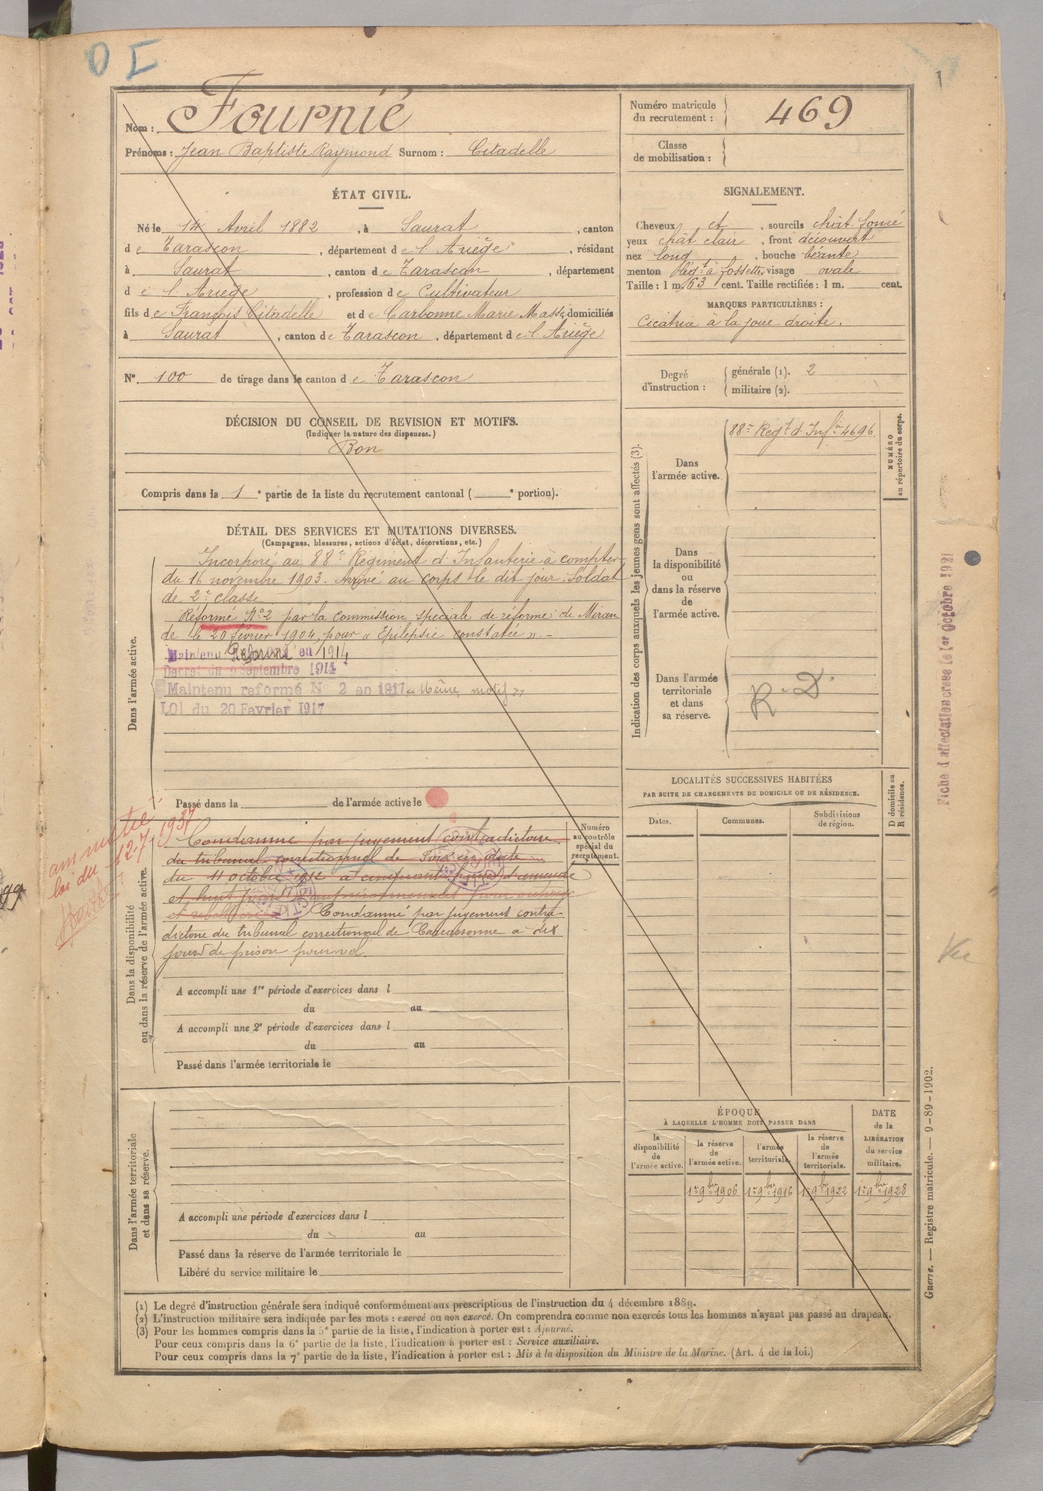 Nom : Fournié
Prénoms : Jean Baptiste Raymond Surnom : Citadelle
Numéro matricule
du recrutement : 469
Classe
de mobilisation :
ÉTAT CIVIL.
Né le 14 Avril 1882, à Saurat, canton
de Tarascon, département de l'Ariège, résidant
à Saurat, canton de Tarascon, département
de l'Ariège, profession de Cultivateur
fils de François Citadelle et de Carbonne Marie domiciliés
à Saurat, canton de Tarascon, département de l'Ariège
N° 100 de tirage dans le canton de Tarascon
SIGNALEMENT.
Cheveux et, sourcils chât foncé
yeux chât clair, front découvert
nez long, bouche béante
menton à fossette, visage ovale
Taille : 1 m. 63 cent. Taille rectifiée : 1 m. cent.
MARQUES PARTICULIÈRES :
Cicatrice à la joue droite.
Degré
d'instruction :
générale (1). 2
militaire (2).
DÉCISION DU CONSEIL DE REVISION ET MOTIFS.
(Indiquer la nature des dispenses.)
Bon
Compris dans la 1e partie de la liste du recrutement cantonal ( e portion).
DÉTAIL DES SERVICES ET MUTATIONS DIVERSES.
(Campagnes, blessures, actions d'éclat, décorations, etc.)
Dans l'armée active.
Incorporé au 88e Régiment d'Infanterie à compter
du 16 novembre 1903. Arrivé au corps le dit jour. Soldat
de 2e classe
Réformé N°2 par la commission spéciale de réforme de
le 20 février 1904, pour « Epilepsie constatée ». -
Maintenu Réformé en 1914
Décret du 9 septembre 1914
Maintenu réformé N° 2 en 1917 « Même motif »
LOI du 20 Février 1917
Passé dans la de l'armée active le
Dans la disponibilité
ou dans la réserve de l'armée active.
amnistié
loi du 12-7 1937
Condamné par jugement contradictoire
du tribunal correctionnel de Foix en date
du 11 octobre 1912 à cinquante francs d'amende
et huit jours
et Condamné par jugement contra-
dictoire du tribunal correctionnel de Carcassonne à dix
jours de prison pour vol.
Numéro
au contrôle
spécial du
recrutement.
A accompli une 1re période d'exercices dans l
du au
A accompli une 2e période d'exercices dans l
du au
Passé dans l'armée territoriale le
Dans l'armée territoriale
et dans sa réserve.
A accompli une période d'exercices dans l
du au
Passé dans la réserve de l'armée territoriale le
Libéré du service militaire le
Indication des corps auxquels les jeunes gens sont affectés (3).
Dans
l'armée active.
88e Regt d'Infie 4696
NUMÉRO
au répertoire du corps.
Dans
la disponibilité
ou
dans la réserve
de
l'armée active.
Dans l'armée
territoriale
et dans
sa réserve.
R. D.
LOCALITÉS SUCCESSIVES HABITÉES
PAR SUITE DE CHANGEMENTS DE DOMICILE OU DE RÉSIDENCE.
Dates.
Communes.
Subdivisions
de région.
D domicile ou
R résidence.
ÉPOQUE
À LAQUELLE L'HOMME DOIT PASSER DANS
la
disponibilité
de
l'armée active.
la réserve
de
l'armée active.
l'armée
territoriale.
la réserve
de
l'armée
territoriale.
DATE
de la
LIBÉRATION
du service
militaire.
1er 9bre 1906
1er 9bre 1916
1er 9bre 1922
1er 9bre 1928
Fiche d'affectation créée le 1er Octobre 1921
Vu
Guerre. — Registre matricule. — 9-89-1902.
(1) Le degré d'instruction générale sera indiqué conformément aux prescriptions de l'instruction du 4 décembre 1889.
(2) L'instruction militaire sera indiquée par les mots : exercé ou non exercé. On comprendra comme non exercés tous les hommes n'ayant pas passé au drapeau.
(3) Pour les hommes compris dans la 5e partie de la liste, l'indication à porter est : Ajourné.
Pour ceux compris dans la 6e partie de la liste, l'indication à porter est : Service auxiliaire.
Pour ceux compris dans la 7e partie de la liste, l'indication à porter est : Mis à la disposition du Ministre de la Marine. (Art. 4 de la loi.)